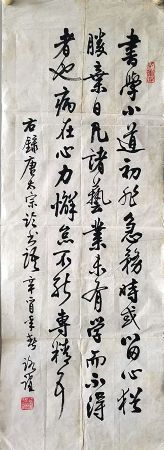 書學小道初非急務時或留心猶
勝棄日凡諸藝業未有學而不得
者也病在心力懈怠不能專精耳
右錄唐太宗論書語辛酉年